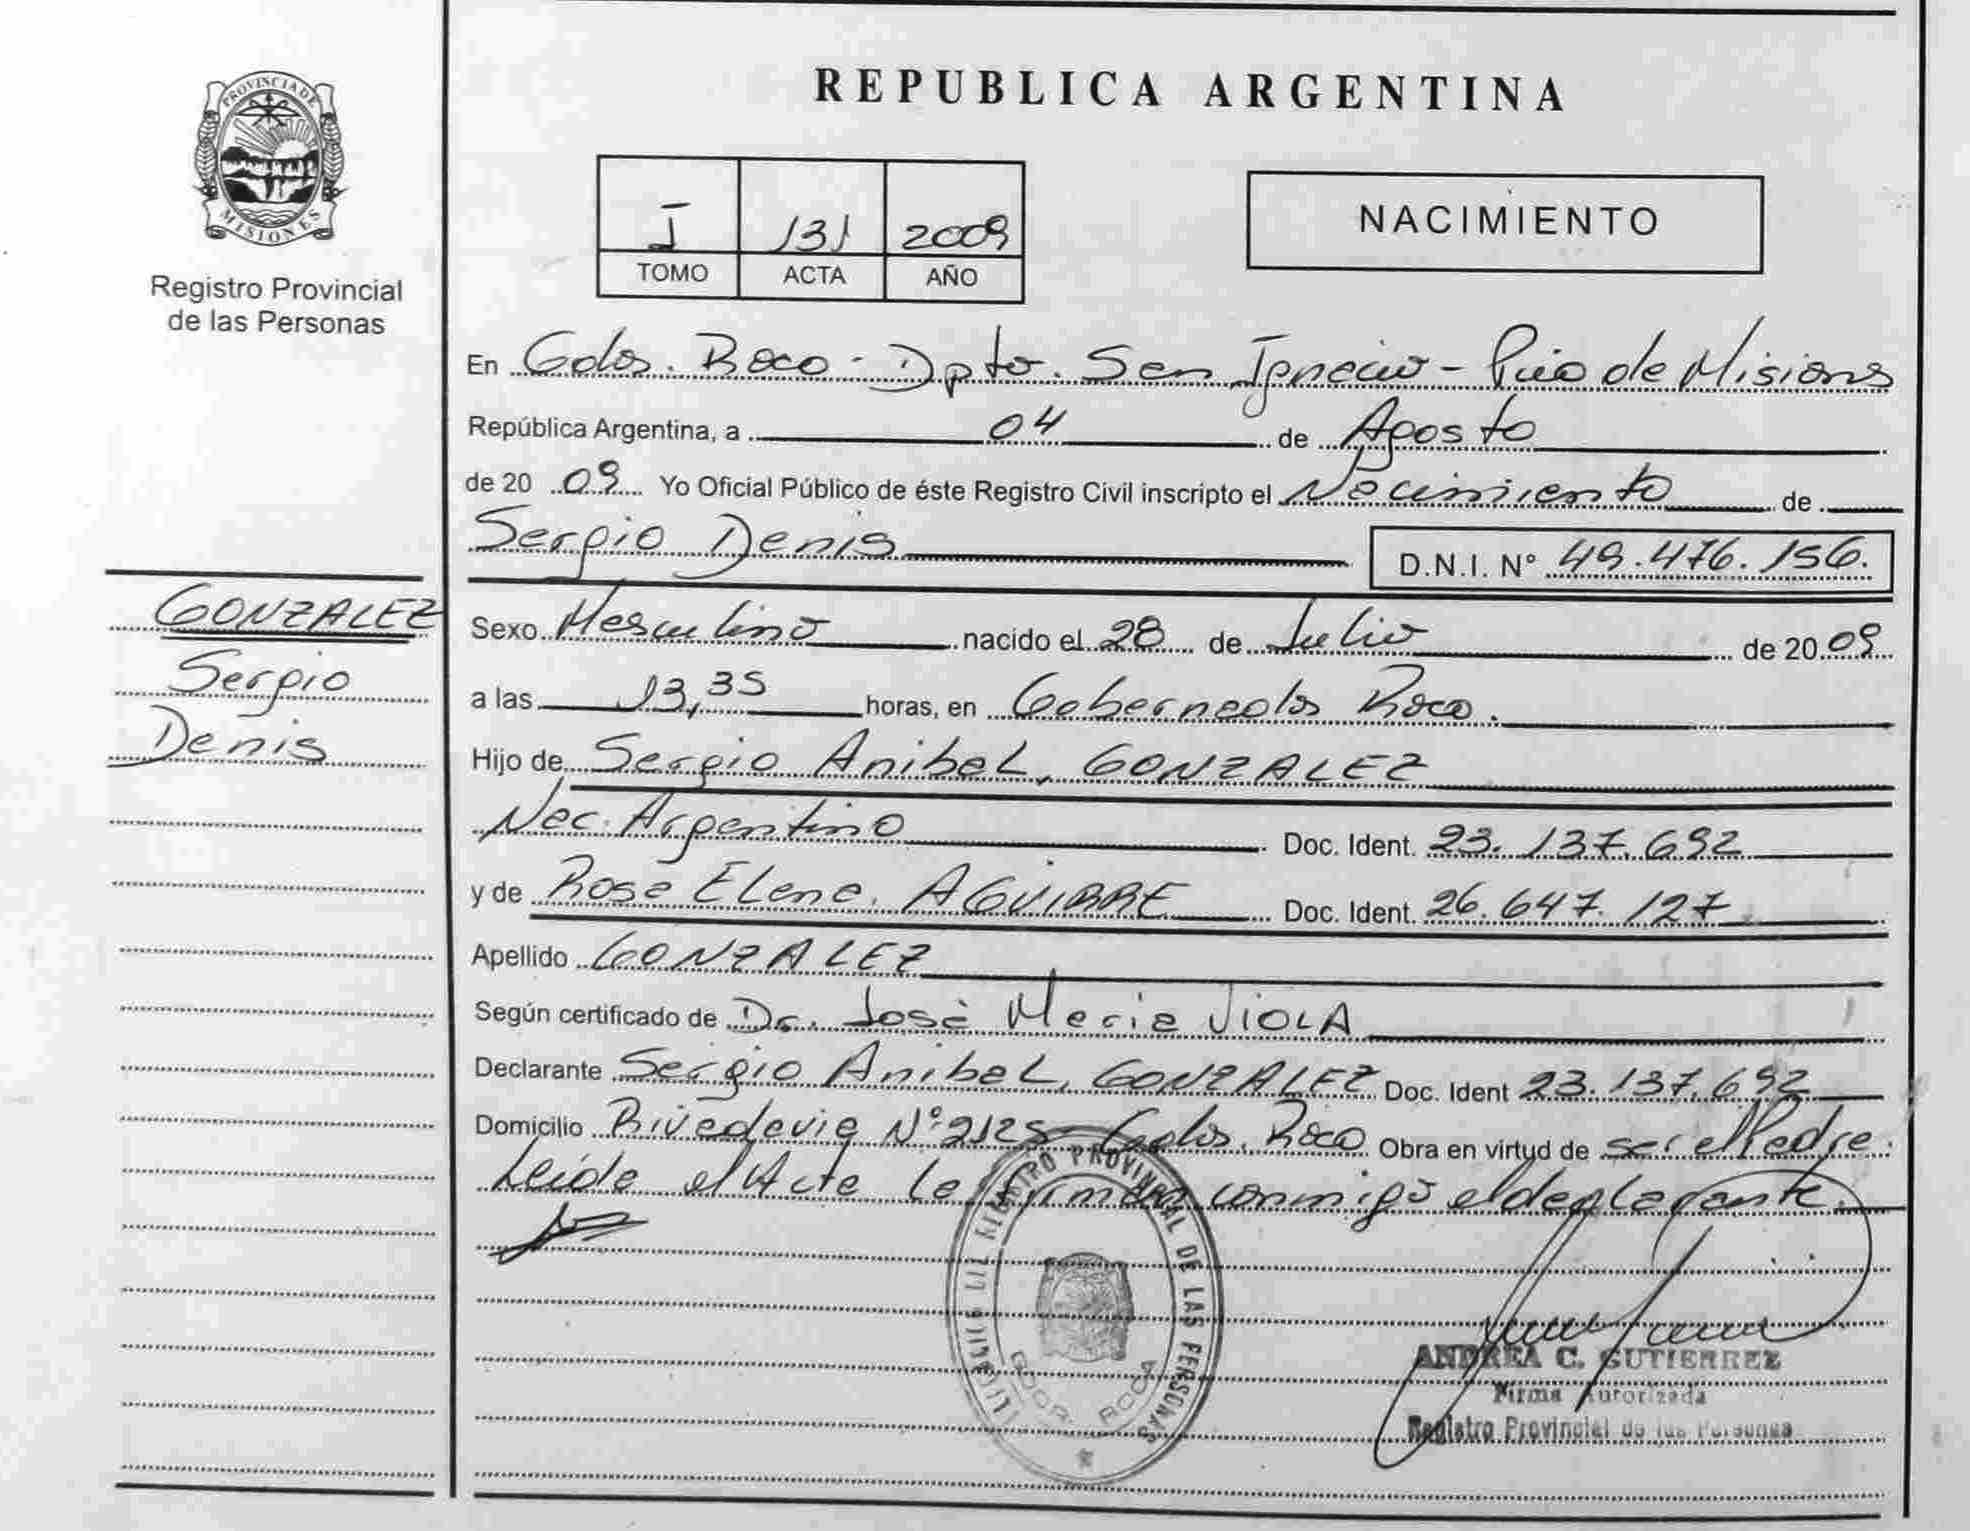 PROVINCIA DE
MISIONES
Registro Provincial
de las Personas
GONZALEZ
Sergio
Denis
REPUBLICA ARGENTINA
I 131 2009
TOMO ACTA AÑO
NACIMIENTO
En Gdor. Roca - Dpto. San Ignacio - Pcia de Misiones
República Argentina, a 04 de Agosto
de 20 09 Yo Oficial Público de éste Registro Civil inscripto el Nacimiento de
Sergio Denis D.N.I. Nº 49.476.156.
Sexo Masculino nacido el 28 de Julio de 20 09
a las 13,35 horas, en Gobernador Roca.
Hijo de Sergio Anibal, GONZALEZ
Nac. Argentino Doc. Ident. 23.137.692
y de Rosa Elena, AGUIRRE Doc. Ident. 26.647.127
Apellido GONZALEZ
Según certificado de Dr. José Maria VIOLA
Declarante Sergio Anibal, GONZALEZ Doc. Ident 23.137.692
Domicilio Rivadavia Nº 2125 Gdor. Roca Obra en virtud de ser el Padre.
Leída el Acta la firman conmigo el declarante.
REGISTRO PROVINCIAL DE LAS PERSONAS
GDOR. ROCA
ANDREA C. GUTIERREZ
Firma Autorizada
Registro Provincial de las Personas